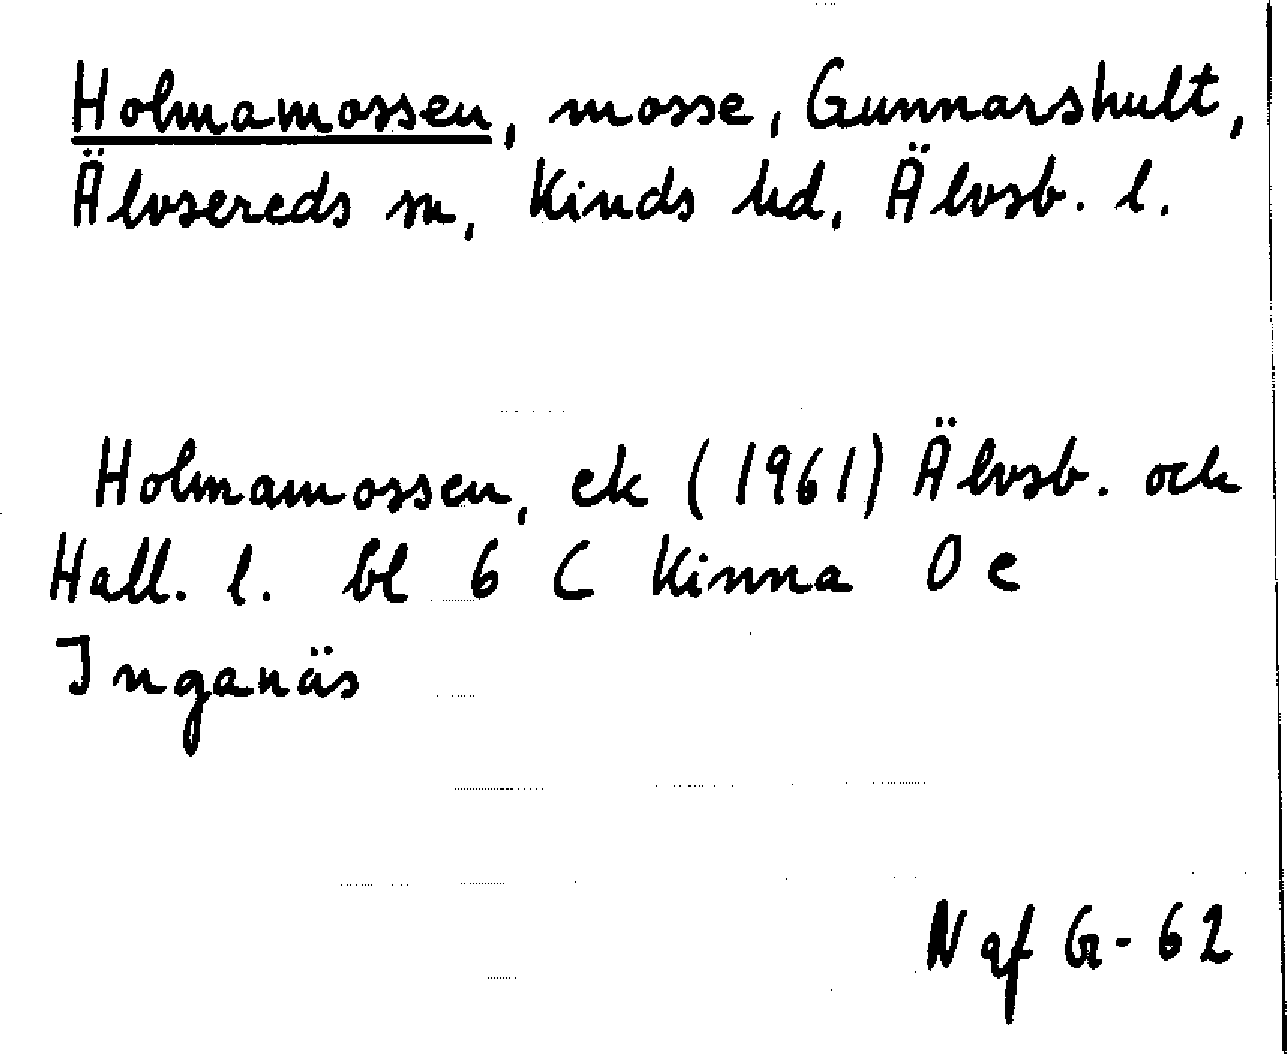 Holmamossen, mosse, Gunnarshult,
Älvsereds sn, Kinds hd, Älvsb. l.
Holmamossen, ek (1961) Älvsb. och
Hall. l. bl 6 C Kinna 0 e
Inganäs
Ngf G-62